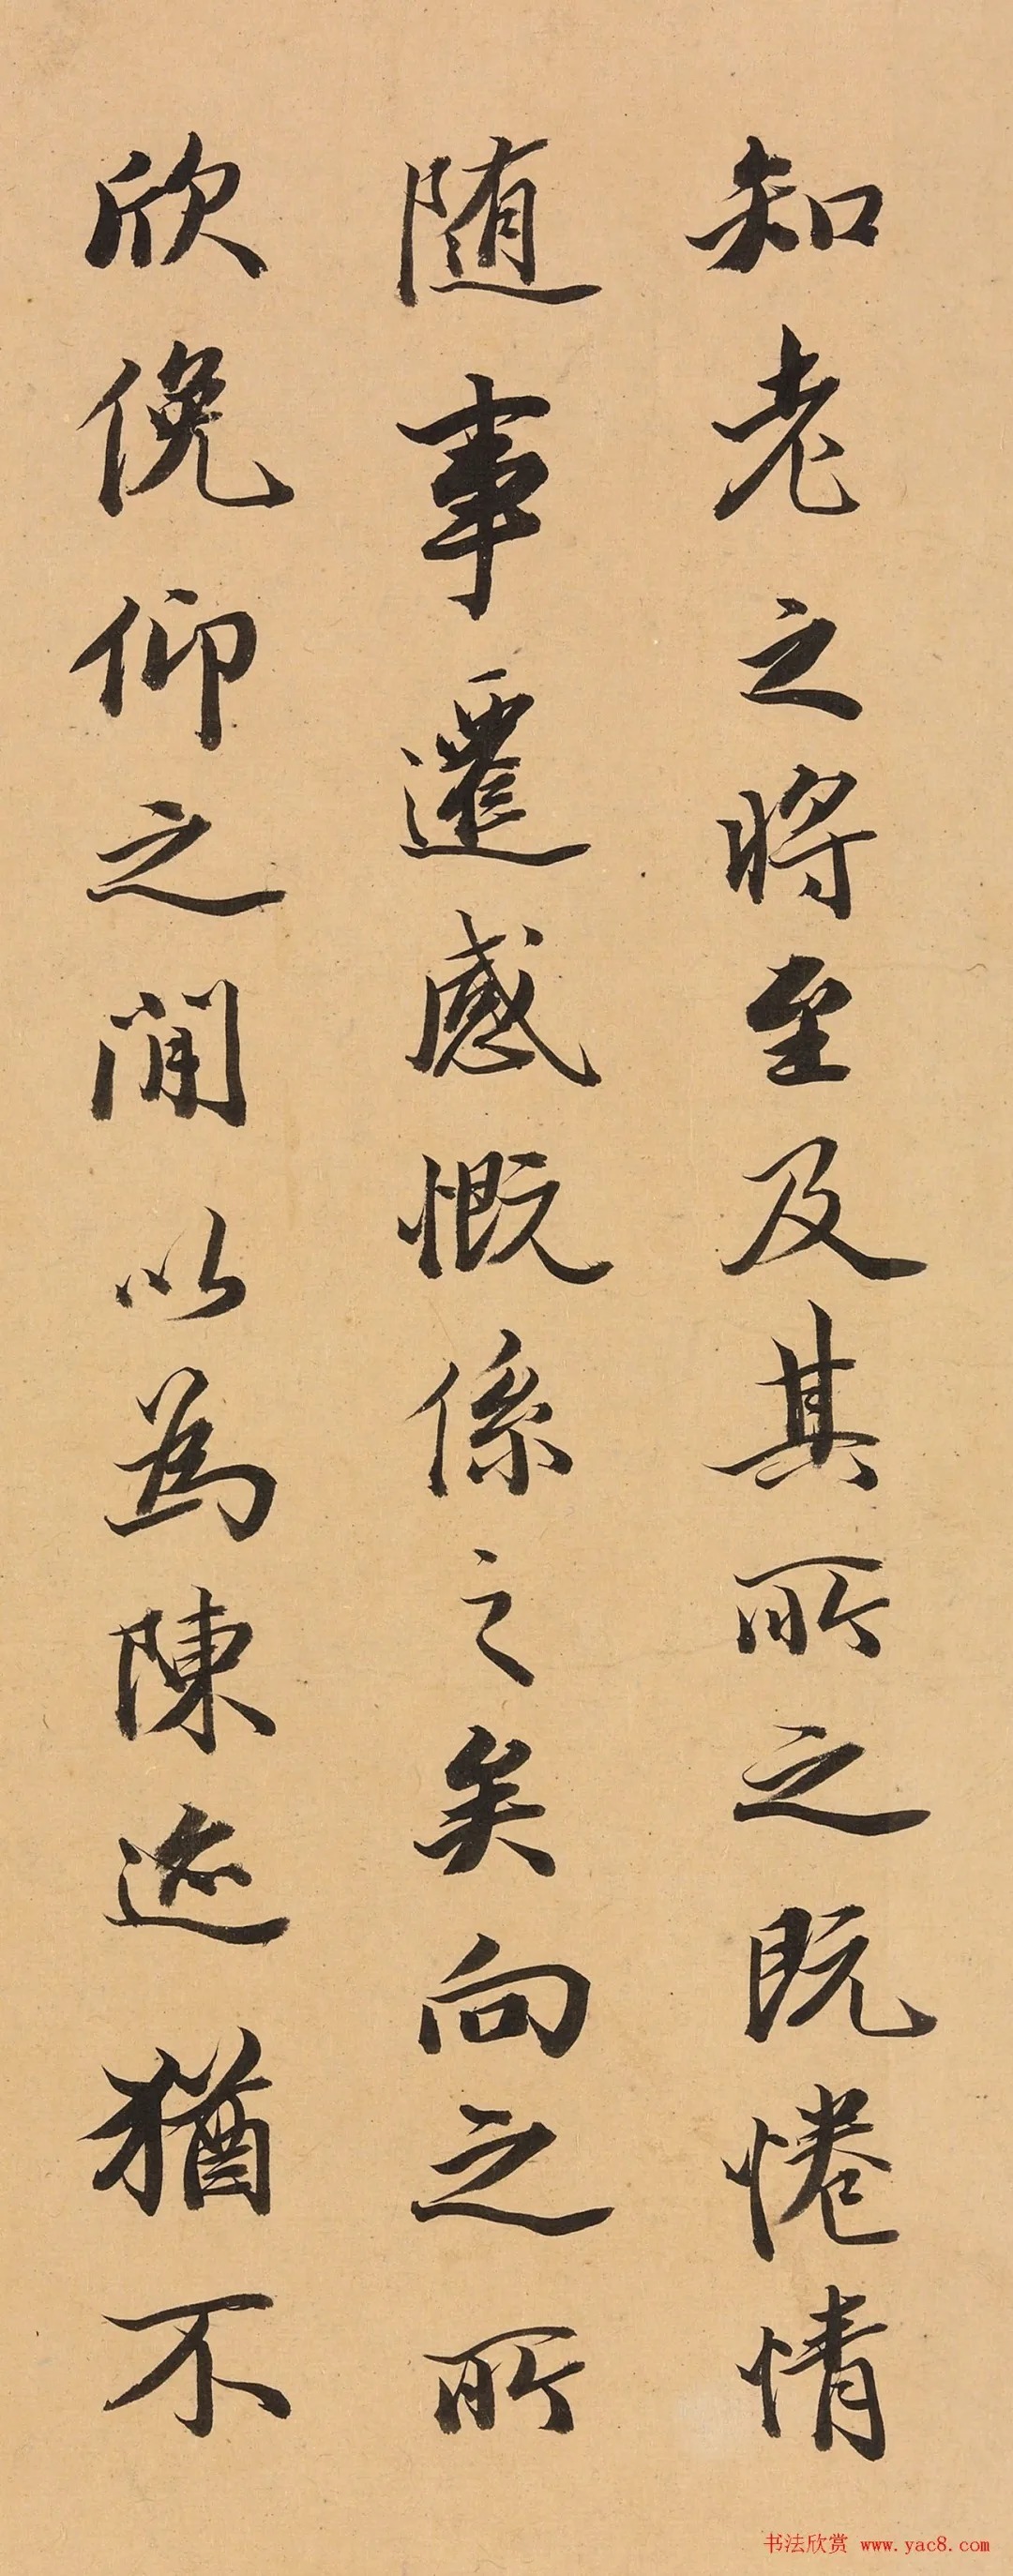 知老之将至及其所之既惓情
随事遷感慨係之矣向之所
欣俛仰之閒以為陳迹猶不
书法欣赏 www.yac8.com